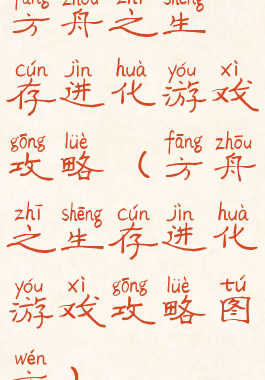 fāng zhōu zhī shēng
方舟之生
cún jìn huà yóu xì
存进化游戏
gōng lüè fāng zhōu
攻略（方舟
zhī shēng cún jìn huà
之生存进化
yóu xì gōng lüè tú
游戏攻略图
wén
文）